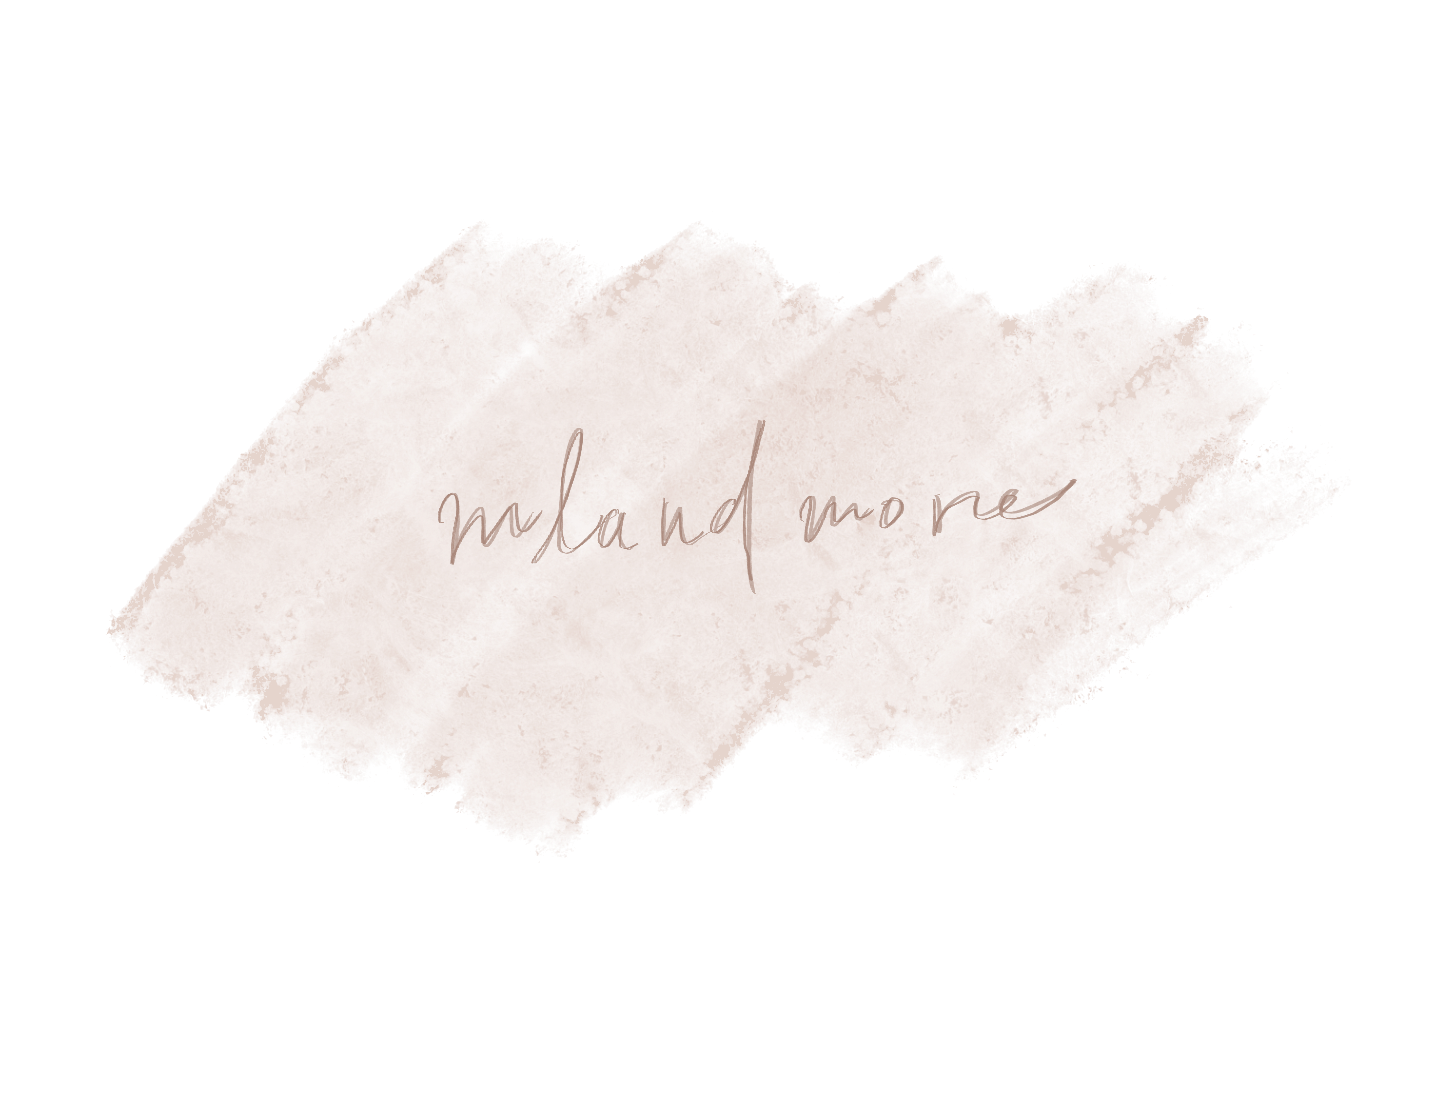 mland more